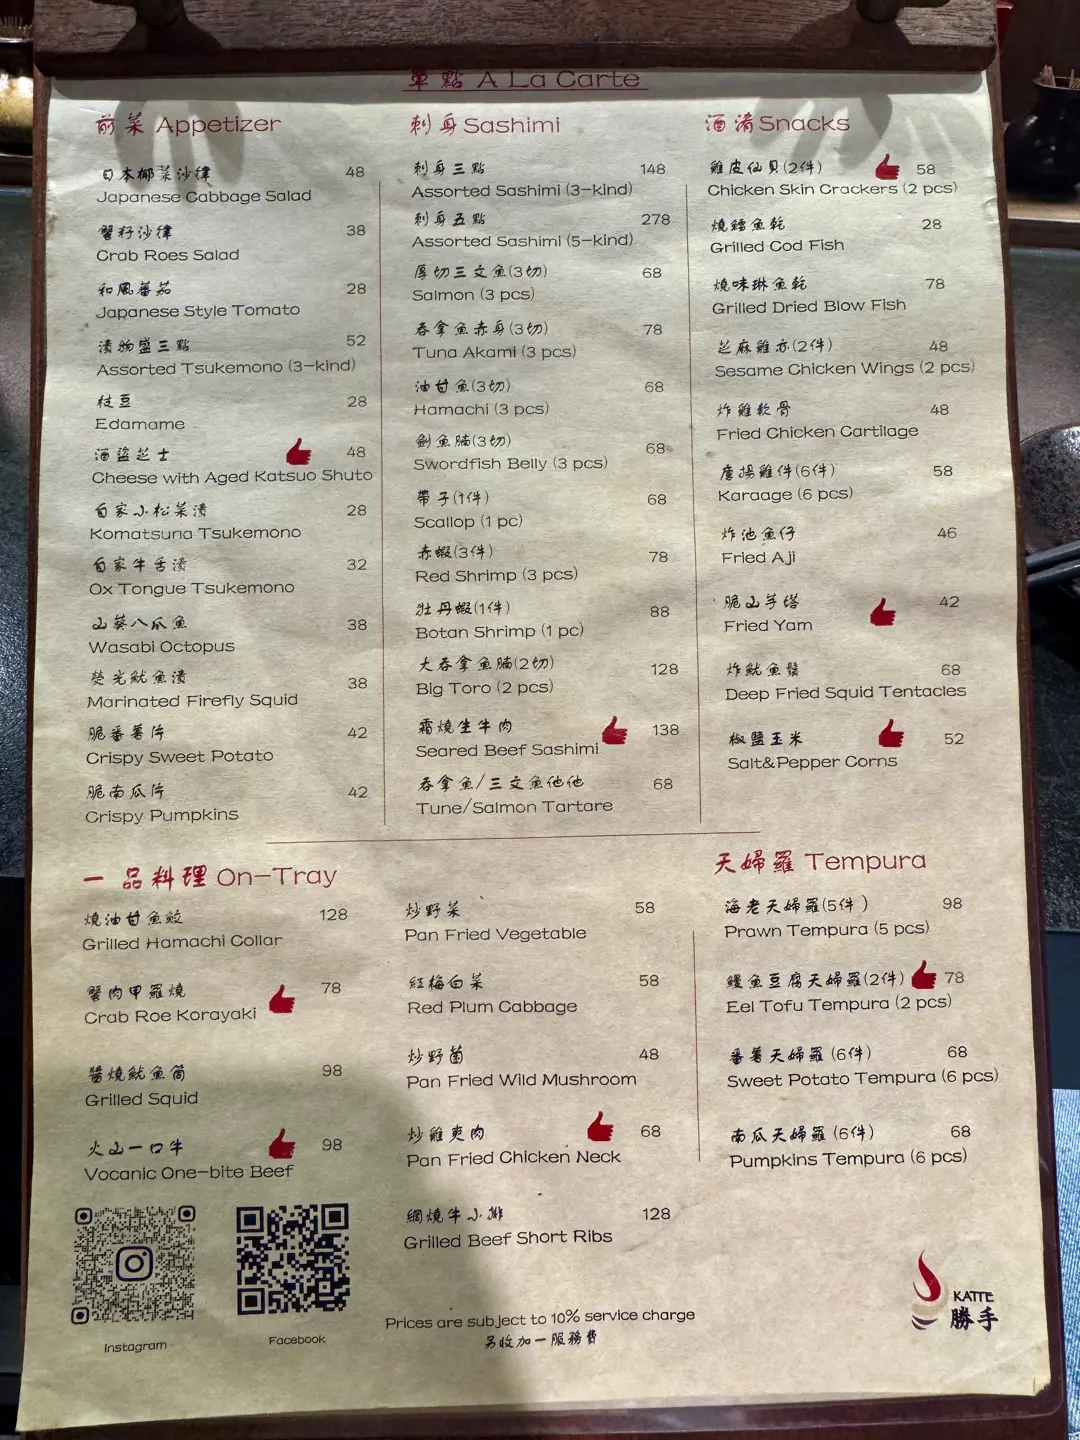 單點 A La Carte
前菜 Appetizer
日本椰菜沙律 48
Japanese Cabbage Salad
蟹籽沙律 38
Crab Roes Salad
和風蕃茄 28
Japanese Style Tomato
漬物盛三點 52
Assorted Tsukemono (3-kind)
枝豆 28
Edamame
酒盜芝士 48
Cheese with Aged Katsuo Shuto
自家小松菜漬 28
Komatsuna Tsukemono
自家牛舌漬 32
Ox Tongue Tsukemono
山葵八爪魚 38
Wasabi Octopus
熒光魷魚漬 38
Marinated Firefly Squid
脆番薯片 42
Crispy Sweet Potato
脆南瓜片 42
Crispy Pumpkins
刺身 Sashimi
刺身三點 148
Assorted Sashimi (3-kind)
刺身五點 278
Assorted Sashimi (5-kind)
厚切三文魚(3切) 68
Salmon (3 pcs)
吞拿魚赤身(3切) 78
Tuna Akami (3 pcs)
油甘魚(3切) 68
Hamachi (3 pcs)
劍魚腩(3切) 68
Swordfish Belly (3 pcs)
帶子(1件) 68
Scallop (1 pc)
赤蝦(3件) 78
Red Shrimp (3 pcs)
牡丹蝦(1件) 88
Botan Shrimp (1 pc)
大吞拿魚腩(2切) 128
Big Toro (2 pcs)
霜燒生牛肉 138
Seared Beef Sashimi
吞拿魚/三文魚他他 68
Tune/Salmon Tartare
酒淆 Snacks
雞皮仙貝(2件) 58
Chicken Skin Crackers (2 pcs)
燒鱈魚乾 28
Grilled Cod Fish
燒味琳魚乾 78
Grilled Dried Blow Fish
芝麻雞亦(2件) 48
Sesame Chicken Wings (2 pcs)
炸雞軟骨 48
Fried Chicken Cartilage
唐揚雞件(6件) 58
Karaage (6 pcs)
炸池魚仔 46
Fried Aji
脆山芋塔 42
Fried Yam
炸魷魚鬚 68
Deep Fried Squid Tentacles
椒鹽玉米 52
Salt&Pepper Corns
一品料理 On-Tray
燒油甘魚鮫 128
Grilled Hamachi Collar
蟹肉甲羅燒 78
Crab Roe Korayaki
醬燒魷魚筒 98
Grilled Squid
火山一口牛 98
Vocanic One-bite Beef
炒野菜 58
Pan Fried Vegetable
紅梅白菜 58
Red Plum Cabbage
炒野菌 48
Pan Fried Wild Mushroom
炒雞爽肉 68
Pan Fried Chicken Neck
網燒牛小排 128
Grilled Beef Short Ribs
天婦羅 Tempura
海老天婦羅(5件) 98
Prawn Tempura (5 pcs)
鰻魚豆腐天婦羅(2件) 78
Eel Tofu Tempura (2 pcs)
番薯天婦羅 (6件) 68
Sweet Potato Tempura (6 pcs)
南瓜天婦羅 (6件) 68
Pumpkins Tempura (6 pcs)
Instagram
Facebook
Prices are subject to 10% service charge
另收加一服務費
KATTE
勝手